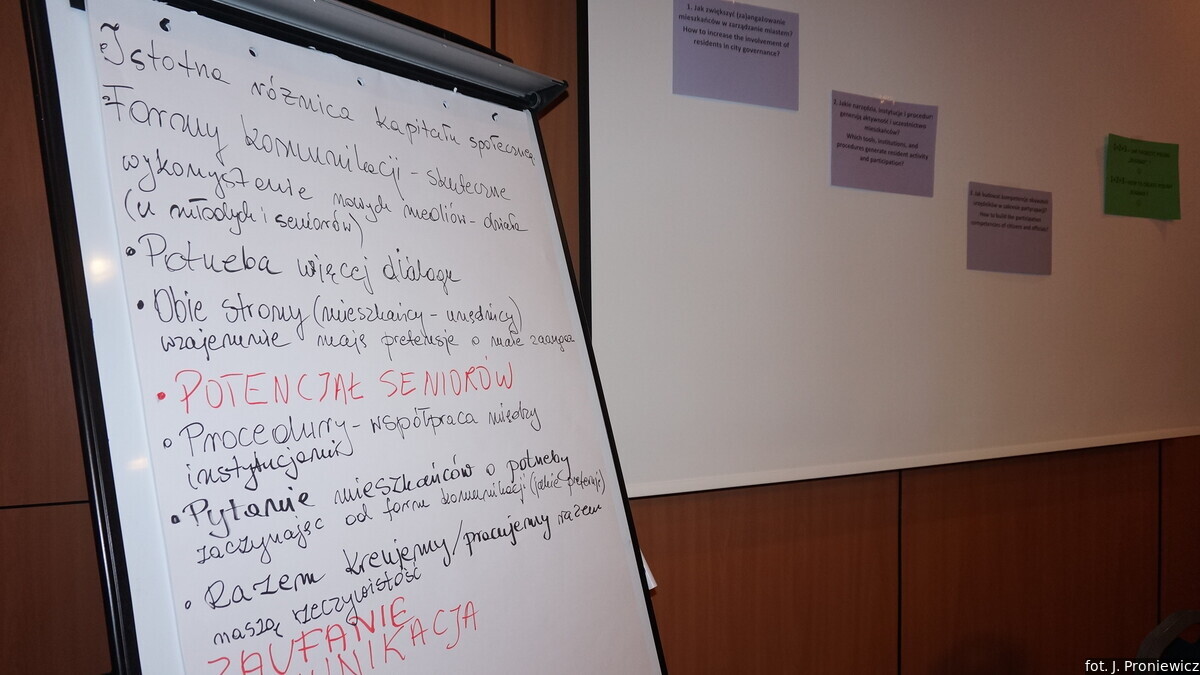 Istotna różnica kapitału społeczneg
Formy komunikacji - skuteczne
wykorzystanie nowych mediów - działa
(u młodych i seniorów)
• Potrzeba więcej dialogu
• Obie strony (mieszkańcy - urzędnicy)
wzajemnie mają pretensje o małe zaanga
• POTENCJAŁ SENIORÓW
• Procedury - współpraca między
instytucjami
• Pytanie mieszkańców o potrzeby
zaczynając od form komunikacji (jakie preferują)
• Razem kreujemy/pracujemy razem
naszą rzeczywistość
ZAUFANIE
UNIKACJA
1. Jak zwiększyć (za)angażowanie
mieszkańców w zarządzanie miastem?
How to increase the involvement of
residents in city governance?
2. Jakie narzędzia, instytucje i procedury
generują aktywność i uczestnictwo
mieszkańców?
Which tools, institutions, and
procedures generate resident activity
and participation?
3. Jak budować kompetencje obywateli i
urzędników w zakresie partycypacji?
How to build the participation
competencies of citizens and officials?
fot. J. Proniewicz